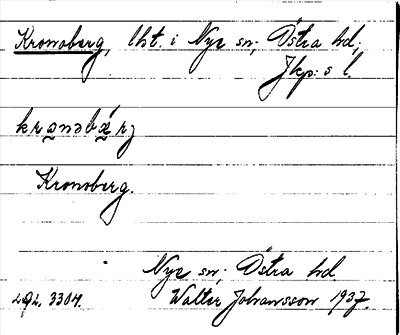 Kronoberg, lht. i Nye sn; Östra hd;
Jkp:s l.
Kronoberg.
Nye sn; Östra hd
Walter Johansson 1937.